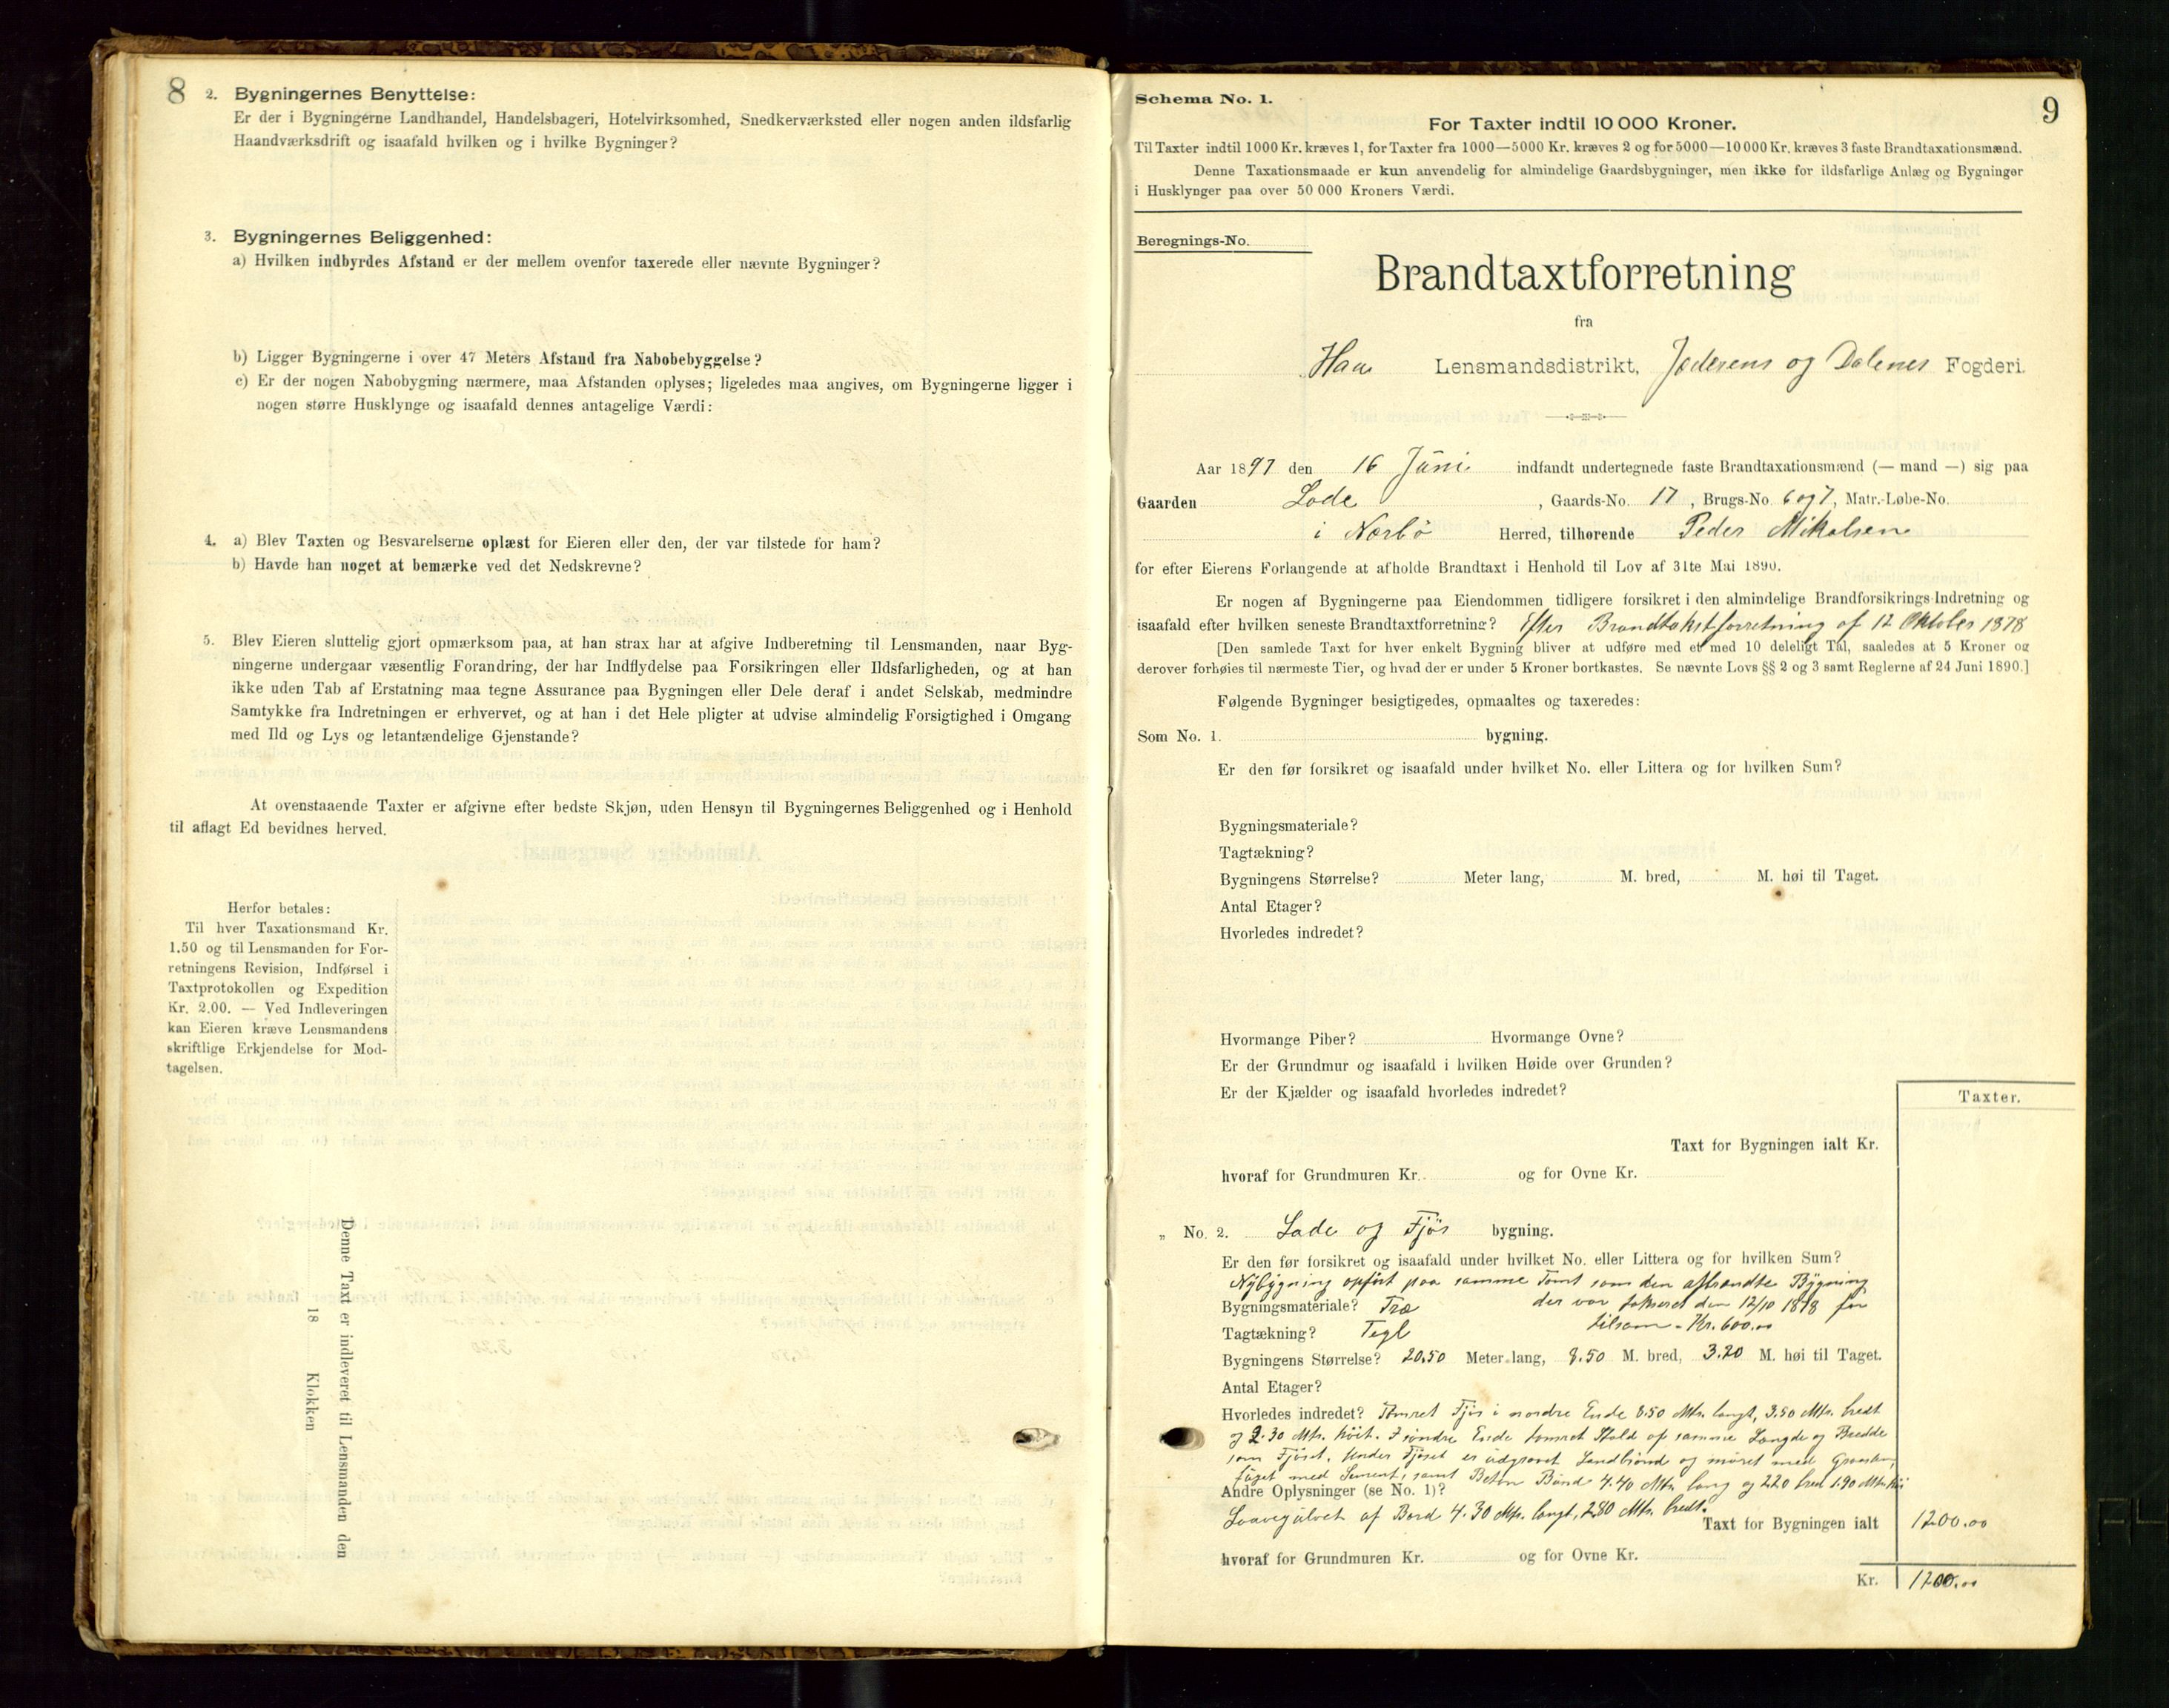 8
2. Bygningernes Benyttelse:
Er der i Bygningerne Landhandel, Handelsbageri, Hotelvirksomhed, Snedkerværksted eller nogen anden ildsfarlig
Haandværksdrift og isaafald hvilken og i hvilke Bygninger?
3. Bygningernes Beliggenhed:
a) Hvilken indbyrdes Afstand er der mellem ovenfor taxerede eller nævnte Bygninger?
b) Ligger Bygningerne i over 47 Meters Afstand fra Nabobebyggelse?
c) Er der nogen Nabobygning nærmere, maa Afstanden oplyses; ligeledes maa angives, om Bygningerne ligger i
nogen større Husklynge og isaafald dennes antagelige Værdi:
4. a) Blev Taxten og Besvarelserne oplæst for Eieren eller den, der var tilstede for ham?
b) Havde han noget at bemærke ved det Nedskrevne?
5. Blev Eieren sluttelig gjort opmærksom paa, at han strax har at afgive Indberetning til Lensmanden, naar Byg-
ningerne undergaar væsentlig Forandring, der har Indflydelse paa Forsikringen eller Ildsfarligheden, og at han
ikke uden Tab af Erstatning maa tegne Assurance paa Bygningen eller Dele deraf i andet Selskab, medmindre
Samtykke fra Indretningen er erhvervet, og at han i det Hele pligter at udvise almindelig Forsigtighed i Omgang
med Ild og Lys og letantændelige Gjenstande?
At ovenstaaende Taxter er afgivne efter bedste Skjøn, uden Hensyn til Bygningernes Beliggenhed og i Henhold
til aflagt Ed bevidnes herved.
Herfor betales:
Til hver Taxationsmand Kr.
1.50 og til Lensmanden for For-
retningens Revision, Indførsel i
Taxtprotokollen og Expedition
Kr. 2.00. — Ved Indleveringen
kan Eieren kræve Lensmandens
skriftlige Erkjendelse for Mod-
tagelsen.
Denne Taxt er indleveret til Lensmanden den
18 Klokken
9
Schema No. 1.
For Taxter indtil 10 000 Kroner.
Til Taxter indtil 1000 Kr. kræves 1, for Taxter fra 1000—5000 Kr. kræves 2 og for 5000—10 000 Kr. kræves 3 faste Brandtaxationsmænd.
Denne Taxationsmaade er kun anvendelig for almindelige Gaardsbygninger, men ikke for ildsfarlige Anlæg og Bygninger
i Husklynger paa over 50 000 Kroners Værdi.
Beregnings-No.
Brandtaxtforretning
fra
Haa Lensmandsdistrikt, Jæderens og Dalenes Fogderi.
Aar 1897 den 16 Juni indfandt undertegnede faste Brandtaxationsmænd (— mand —) sig paa
Gaarden Lode, Gaards-No. 17, Brugs-No. 6 og 7, Matr.-Løbe-No.
i Nærbø Herred, tilhørende Peder Mikalsen
for efter Eierens Forlangende at afholde Brandtaxt i Henhold til Lov af 31te Mai 1890.
Er nogen af Bygningerne paa Eiendommen tidligere forsikret i den almindelige Brandforsikrings-Indretning og
isaafald efter hvilken seneste Brandtaxtforretning? Efter Brandtakstforretning af 12 Oktober 1878
[Den samlede Taxt for hver enkelt Bygning bliver at udføre med et med 10 deleligt Tal, saaledes at 5 Kroner og
derover forhøies til nærmeste Tier, og hvad der er under 5 Kroner bortkastes. Se nævnte Lovs §§ 2 og 3 samt Reglerne af 24 Juni 1890.]
Følgende Bygninger besigtigedes, opmaaltes og taxeredes:
Som No. 1. bygning.
Er den før forsikret og isaafald under hvilket No. eller Littera og for hvilken Sum?
Bygningsmateriale?
Tagtækning?
Bygningens Størrelse? Meter lang, M. bred, M. høi til Taget.
Antal Etager?
Hvorledes indredet?
Hvormange Piber? Hvormange Ovne?
Er der Grundmur og isaafald i hvilken Høide over Grunden?
Er der Kjælder og isaafald hvorledes indredet?
Taxter.
Taxt for Bygningen ialt Kr.
hvoraf for Grundmuren Kr. og for Ovne Kr.
„ No. 2. Lade og Fjøs bygning.
Er den før forsikret og isaafald under hvilket No. eller Littera og for hvilken Sum?
Nybygning opført paa samme Tomt som den afbrændte Bygning
Bygningsmateriale? Træ der var takseret den 12/10 1878 for
Tagtækning? Tegl tilsam - Kr. 600.00
Bygningens Størrelse? 20.50 Meter lang, 8.50 M. bred, 3.20 M. høi til Taget.
Antal Etager?
Hvorledes indredet? Tømret Fjøs i nordre Ende 8.50 Mtr. langt, 3.50 Mtr. bredt
og 2.30 Mtr. høit. I søndre Ende tømret Stald af samme Længde og Bredde
som Fjøset. Under Fjøset er udgravet Landbrønd og muret med Graasten,
fuget med Sement, samt Beton Bund 4.40 Mtr. lang og 2.20 bred 1.90 Mtr. høi
Andre Oplysninger (se No. 1)?
Laavegulvet af Bord 4.30 Mtr. langt, 2.80 Mtr. bredt.
Taxt for Bygningen ialt 1200.00
hvoraf for Grundmuren Kr. og for Ovne Kr.
Kr. 1200.00